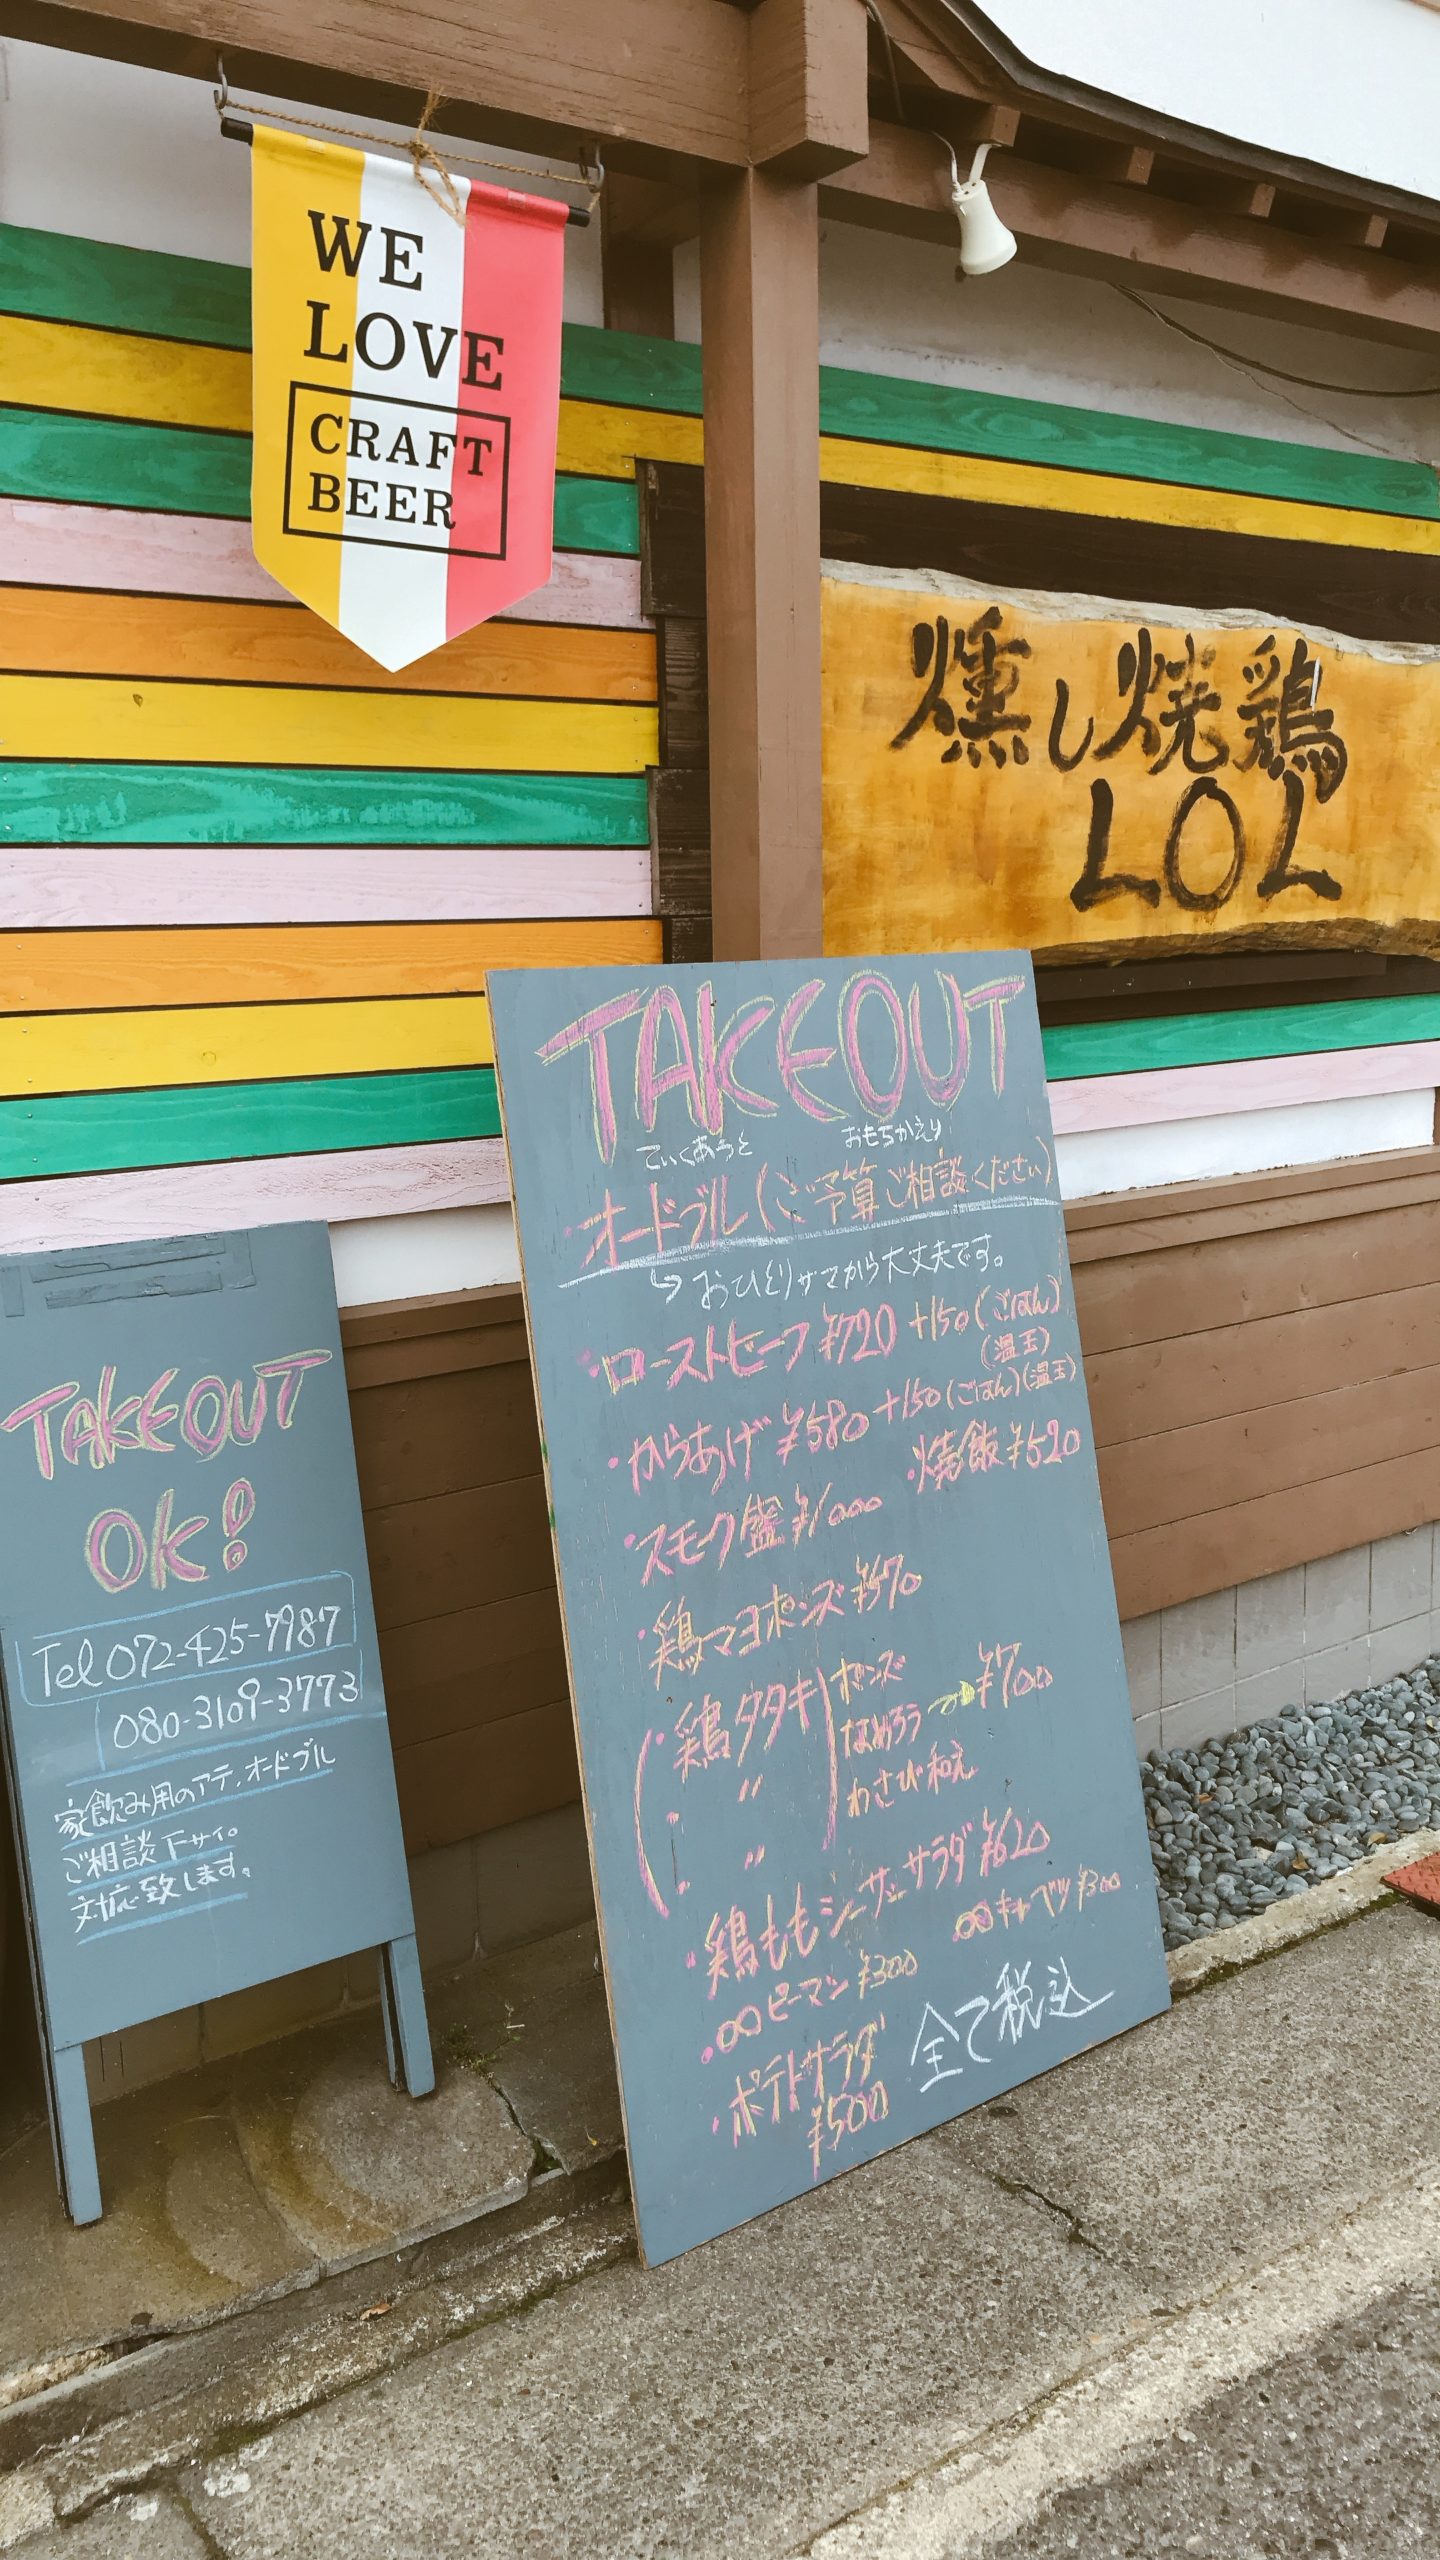 WE
LOVE
CRAFT
BEER
燻し焼鶏
LOL
TAKEOUT
てぃくあうと おもちかえり
・オードブル(ご予算ご相談ください)
↳おひとりサマから大丈夫です。
・ローストビーフ ¥720 +150(ごはん)
(温玉)
・からあげ ¥580 +150(ごはん)(温玉)
・スモーク盛 ¥1000 ・焼飯 ¥520
・鶏マヨポンズ ¥570
・鶏タタキ ポンズ
・ 〃 なめろう → ¥700
・ 〃 わさび和え
・鶏ももシーザーサラダ ¥620
・∞ピーマン ¥300 ・∞キャベツ ¥300
・ポテトサラダ
¥500
全て税込
TAKEOUT
OK!
Tel 072-425-7987
080-3109-3773
家飲み用のアテ、オードブル
ご相談下サイ。
対応致します。